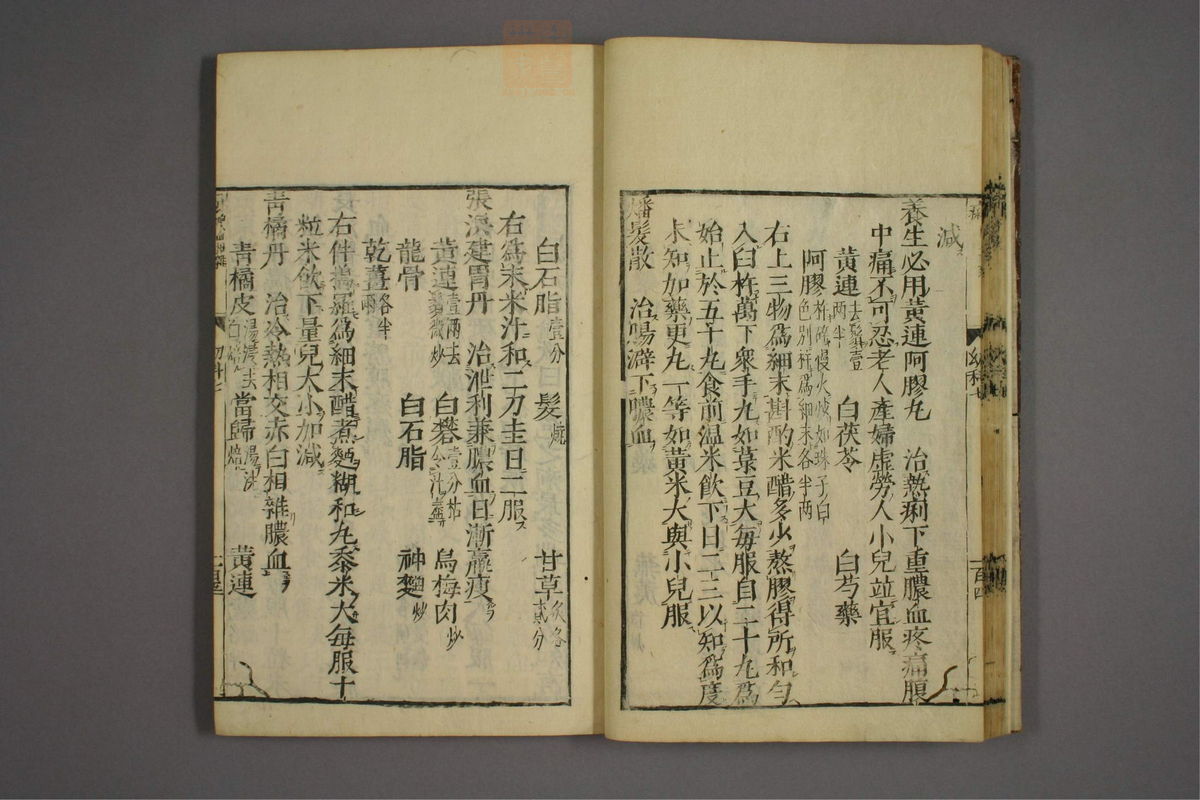 減
養生必用黃連阿膠丸 治熱痢下重膿血疼痛腹
中痛不可忍老人產婦虛勞人小兒竝宜服
黃連去鬚壹兩半 白茯苓 白芍藥
阿膠杵碎慢火炒如珠子白色別杵爲細末各半兩
右上三物爲細末斟酌米醋多少熬膠得所和勻
入臼杵萬下衆手丸如菉豆大每服自二十丸爲
始止於五十丸食前温米飲下日二三以知爲度
未知如藥更丸一等如黃米大與小兒服
燔髮散 治腸澼下膿血
白石脂壹分 髮燒 甘草炙各貳分
右爲末米汁和二刀圭日二服
張渙建胃丹 治泄利兼膿血日漸羸瘦
黃連壹兩去鬚微炒 白礬壹分枯令汁盡 烏梅肉炒
龍骨 白石脂 神麴炒
乾薑各半兩
右件擣羅爲細末醋煮麪糊和丸黍米大每服十
粒米飲下量兒大小加減
靑橘丹 治冷熱相交赤白相雜膿血
靑橘皮湯浸去白焙 當歸湯洗焙 黃連
幼科七
百四